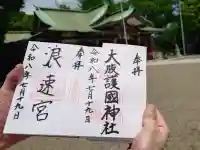 奉拝
大阪護國神社
令和八年七月十九日
奉拝
浪速宮
令和八年七月十九日